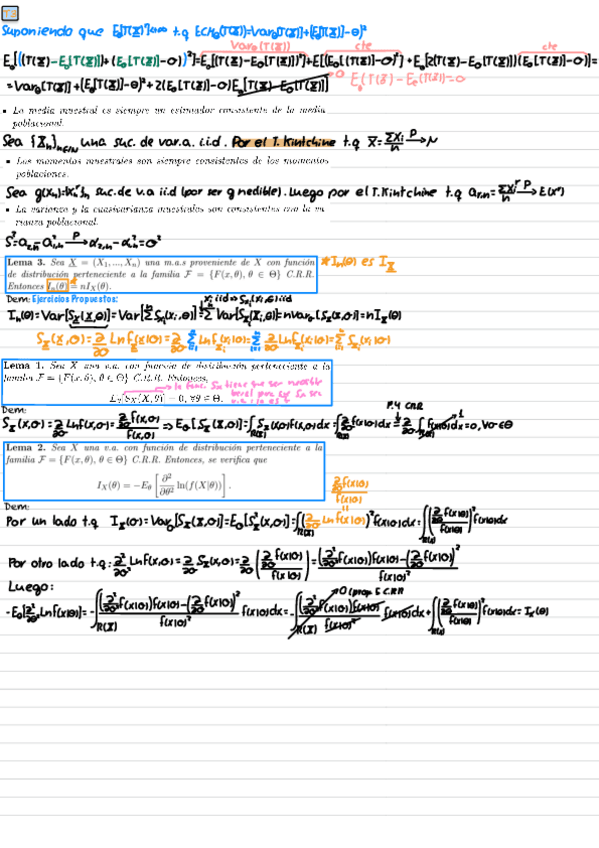 T3
Suponiendo que E[T(X)²]<∞ t.q. ECM_θ(T(X))=Var_θ[T(X)]+(E_θ[T(X)]-θ)²
Var_θ(T(X)) cte cte
E_θ[((T(X)-E_θ[T(X)])+(E_θ[T(X)]-θ))²]=E_θ[(T(X)-E_θ(T(X)))²]+E[(E_θ[(T(X)]-θ)²]+E_θ[2(T(X)-E_θ(T(X)))(E_θ[T(X)]-θ)]=
=Var_θ[T(X)]+(E_θ[T(X)]-θ)²+2(E_θ[T(X)]-θ)E_θ[T(X)-E_θ(T(X))] 0 E(T(X))-E_θ(T(X))=0
▪ La media muestral es siempre un estimador consistente de la media
poblacional.
Sea {X_n}n∈N una suc. de var.a. i.i.d. Por el T. Kintchine t.q. X̄=ΣXi/n →P μ
▪ Los momentos muestrales son siempre consistentes de los momentos
poblaciones.
Sea suc. de v.a iid (por ser g medible). Luego por el T. Kintchine t.q a_r,n=ΣXi^r/n →P E(X^r)
▪ La varianza y la cuasivarianza muestrales son consistentes con la va-
rianza poblacional.
Lema 3. Sea X = (X₁, ..., Xₙ) una m.a.s proveniente de X con función
de distribución perteneciente a la familia F = {F(x, θ), θ ∈ Θ} C.R.R.
Entonces Iₙ(θ) = nI_X(θ).
*Iₙ(θ) es I_X
Dem: Ejercicios Propuestos:
Xi iid ⇒ S_Xi(Xi,θ) iid
Iₙ(θ)=Var[S_X(X,θ)]=Var[Σ S_Xi(Xi,θ)]=Σ Var[S_Xi(Xi,θ)]=nVar_θ[S_X(X,θ)]=nI_X(θ)
S_X(X,θ)=∂/∂θ Ln f_X(x|θ)=∂/∂θ Σ Ln f_Xi(xi|θ)=Σ ∂/∂θ Ln f_Xi(xi|θ)=Σ S_Xi(xi|θ)
Lema 1. Sea X una v.a. con función de distribución perteneciente a la
familia F = {F(x, θ), θ ∈ Θ} C.R.R. Entonces,
la func. S_X tiene que ser medible
E_θ[S_X(X, θ)] = 0, ∀θ ∈ Θ.
Dem:
P.4 CRR
S_X(X,θ)=∂/∂θ Ln f(X,θ)=∂/∂θ f(X,θ)/f(X,θ) ⇒ E_θ[S_X(X,θ)]=∫S_X(X,θ)f(X,θ)dx=∫∂/∂θ f(x|θ)dx=∂/∂θ ∫f(x|θ)dx=0, ∀θ∈Θ
Lema 2. Sea X una v.a. con función de distribución perteneciente a la
familia F = {F(x, θ), θ ∈ Θ} C.R.R. Entonces, se verifica que
I_X(θ) = −E_θ [∂²/∂θ² ln(f(X|θ))].
∂/∂θ f(x|θ)/f(x|θ)
Dem:
Por un lado t.q I_X(θ)=Var_θ[S_X(X,θ)]=E_θ[S_X²(X,θ)]=∫(∂/∂θ Ln f(x|θ))²f(x|θ)dx=∫(∂/∂θ f(x|θ)/f(x|θ))²f(x|θ)dx
Por otro lado t.q: ∂²/∂θ² Ln f(X,θ)=∂/∂θ S_X(X,θ)=∂/∂θ (∂/∂θ f(x|θ)/f(x|θ))=((∂²/∂θ² f(x|θ))f(x|θ)-(∂/∂θ f(x|θ))²)/f(x|θ)²
Luego:
0 (prop 5 C.R.R)
-E_θ[∂²/∂θ² Ln f(x|θ)]=-∫((∂²/∂θ² f(x|θ))f(x|θ)-(∂/∂θ f(x|θ))²)/f(x|θ)² f(x|θ)dx=-∫(∂²/∂θ² f(x|θ))f(x|θ)/f(x|θ)² f(x|θ)dx+∫(∂/∂θ f(x|θ)/f(x|θ))²f(x|θ)dx=I_X(θ)